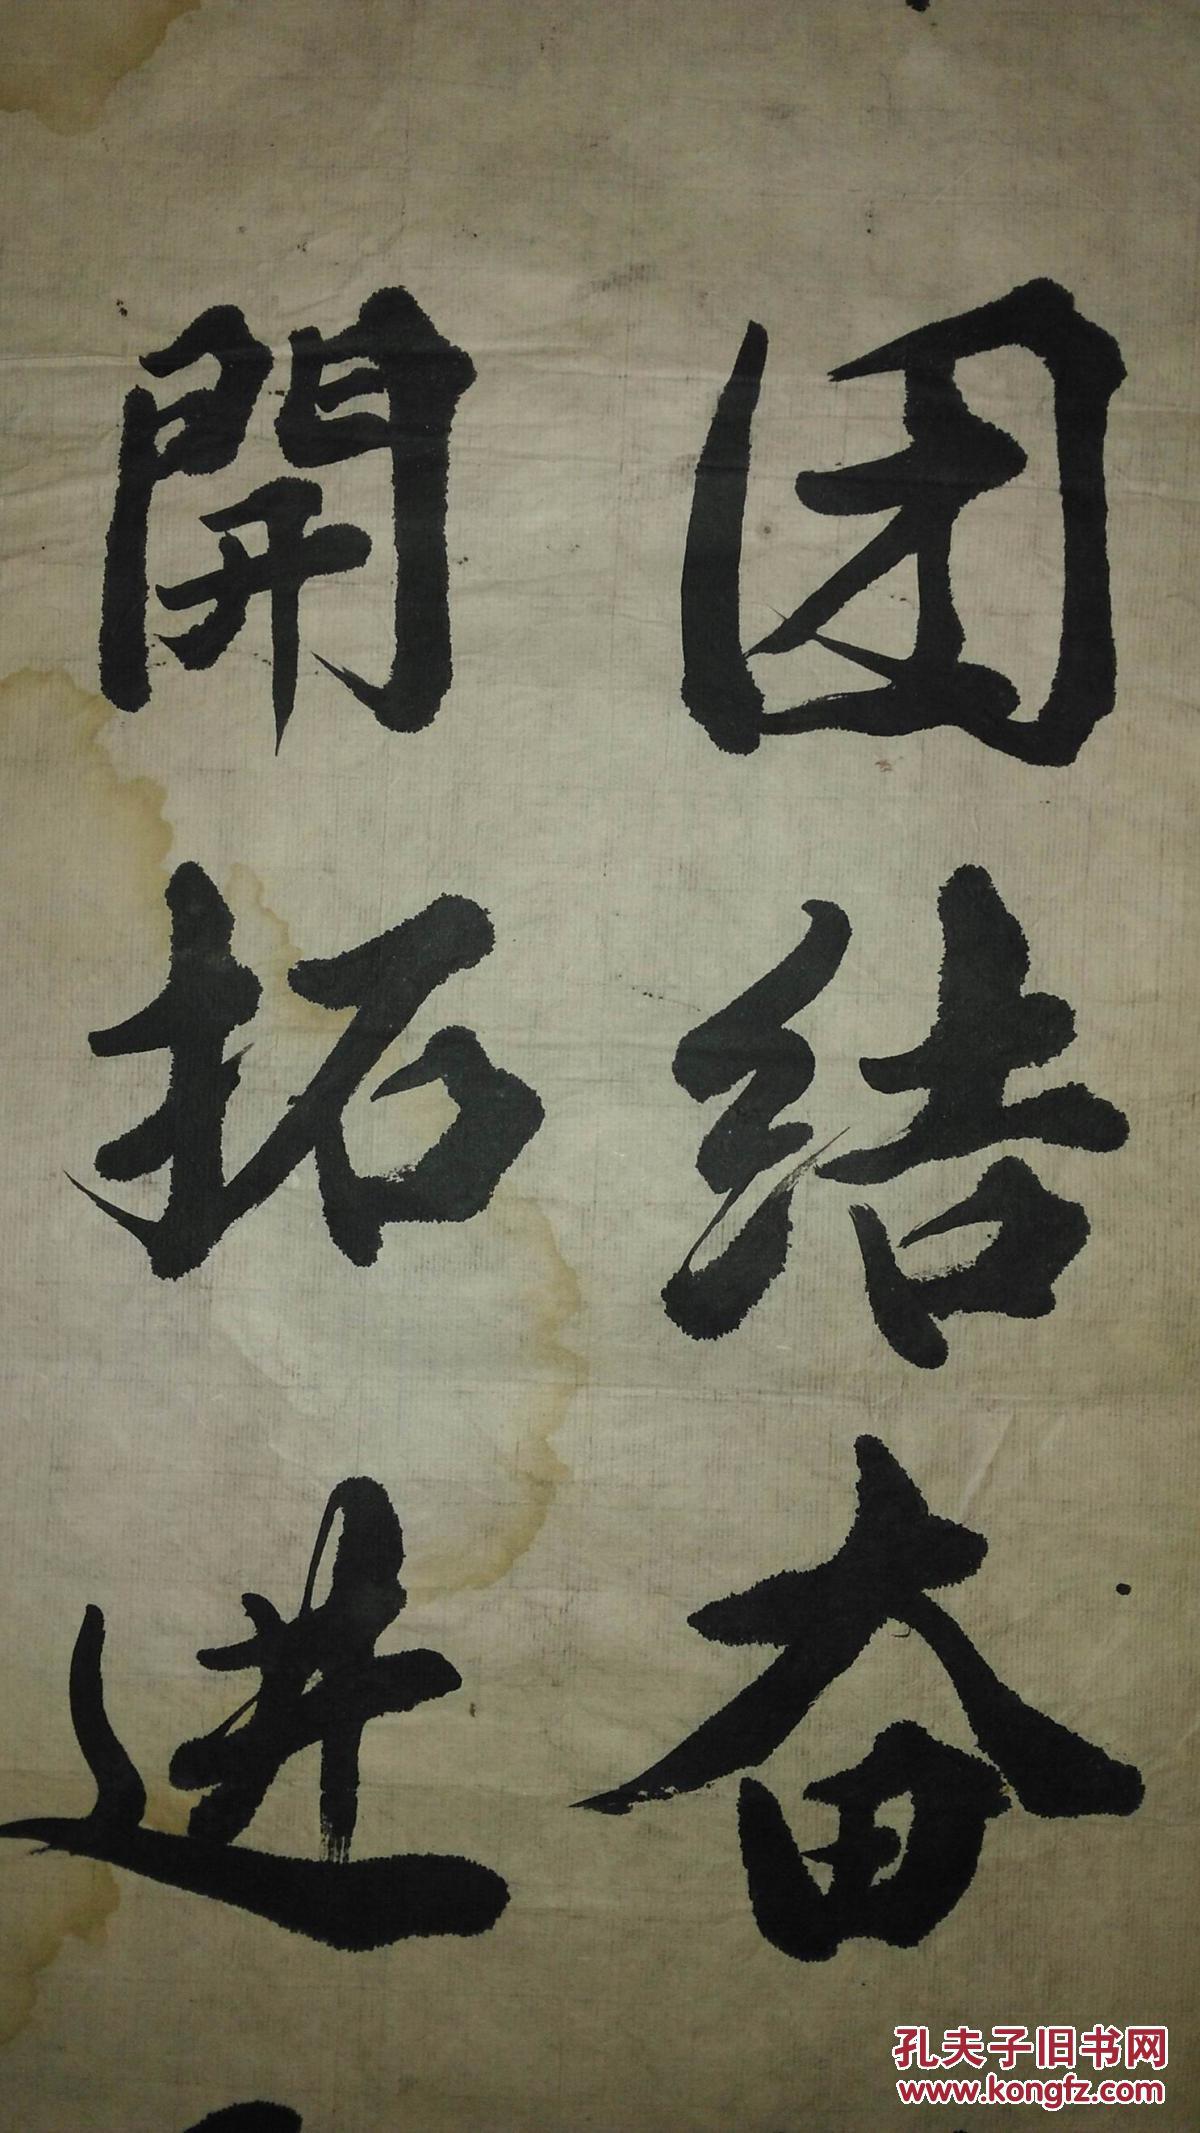 团结奋
開拓进
孔夫子旧书网
www.kongfz.com